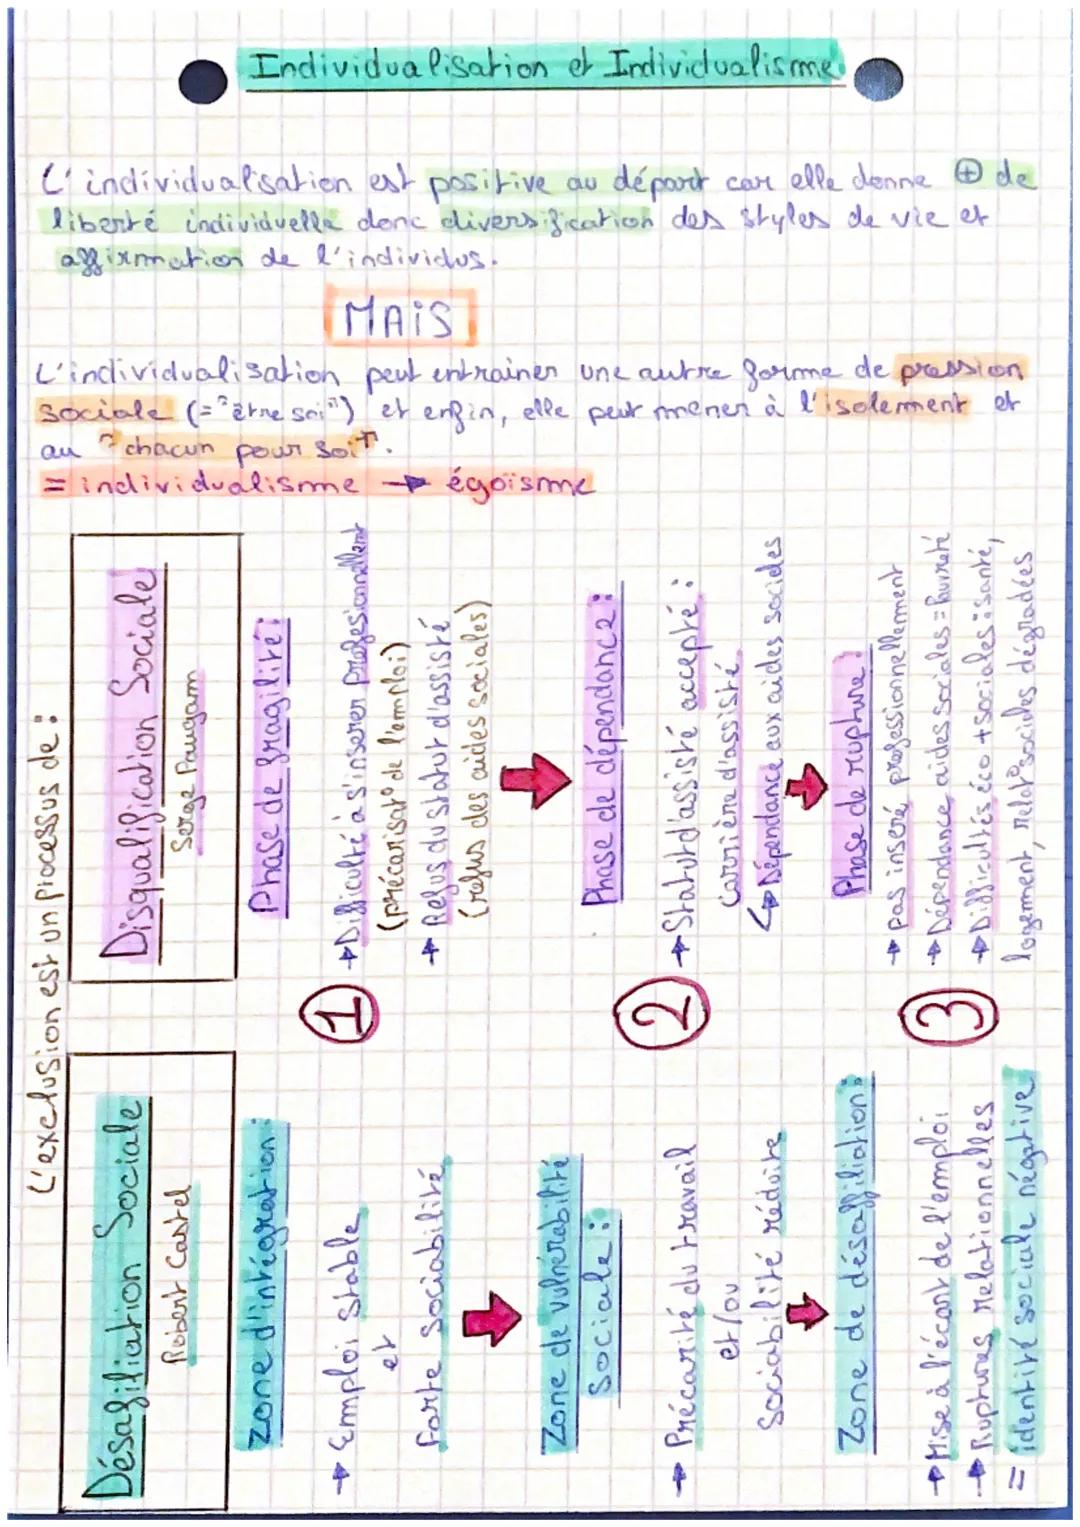 Individualisation et Individualisme
L'individualisation est positive au départ car elle donne ⊕ de
liberté individuelle donc diversification des styles de vie et
affirmation de l'individus.
MAiS
L'individualisation peut entrainer une autre forme de pression
sociale (= "être soi") et enfin, elle peut mener à l'isolement et
au "chacun pour soit".
= individualisme → égoïsme
L'exclusion est un processus de :
Désafiliation Sociale
Robert Castel
Zone d'intégration :
→ Emploi stable
et
forte sociabilité
Zone de vulnérabilité
sociale :
→ Précarité du travail
et/ou
Sociabilité réduite
Zone de désaffiliation :
→ Mise à l'écart de l'emploi
→ Ruptures relationnelles
= identité sociale négative
1
2
3
Disqualification Sociale
Serge Paugam
Phase de fragilité :
→ Difficulté à s'inserer profesionnellement
(précarisat° de l'emploi)
→ Refus du statut d'assisté
(refus des aides sociales)
Phase de dépendance :
→ Statut d'assisté accepté :
Carrière d'assisté
↳ Dépendance aux aides sociales
Phase de rupture :
→ pas inseré professionnellement
→ Dépendance aides sociales = Pauvreté
→ Difficultés éco + sociales : santé,
logement, relat° sociales dégradées